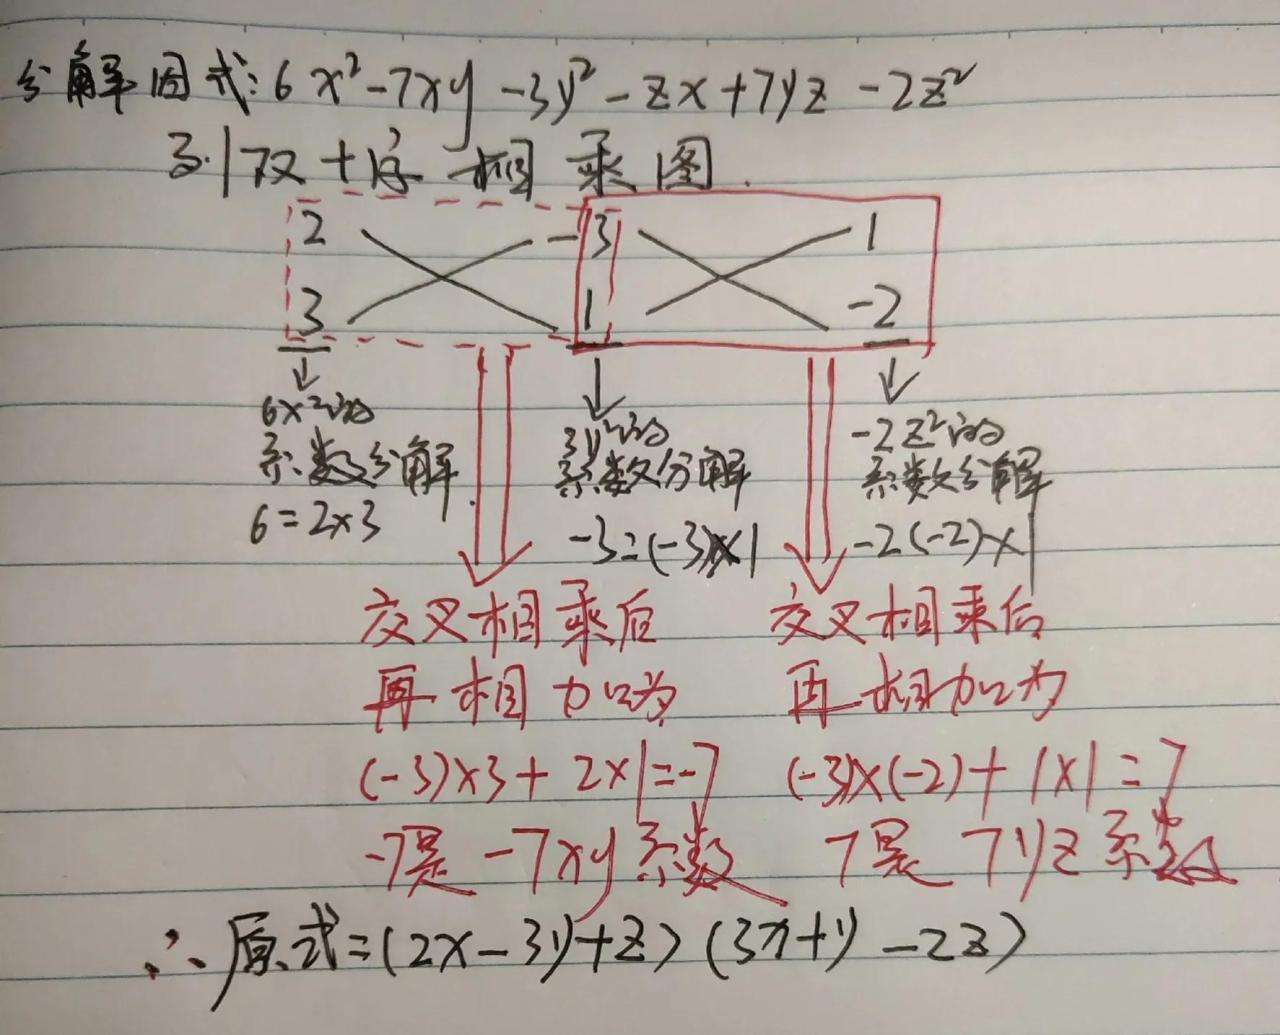 分解因式:6x²-7xy-3y²-zx+7yz-2z²
列双十字相乘图.
2 -3 1
3 1 -2
6x²的
系数分解
6=2×3
3y²的
系数分解
-3=(-3)×1
-2z²的
系数分解
-2(-2)×1
交叉相乘后
再相加为
(-3)×3+2×1=-7
-7是-7xy系数
交叉相乘后
再相加为
(-3)×(-2)+1×1=7
7是7yz系数
∴原式=(2x-3y+z)(3x+y-2z)